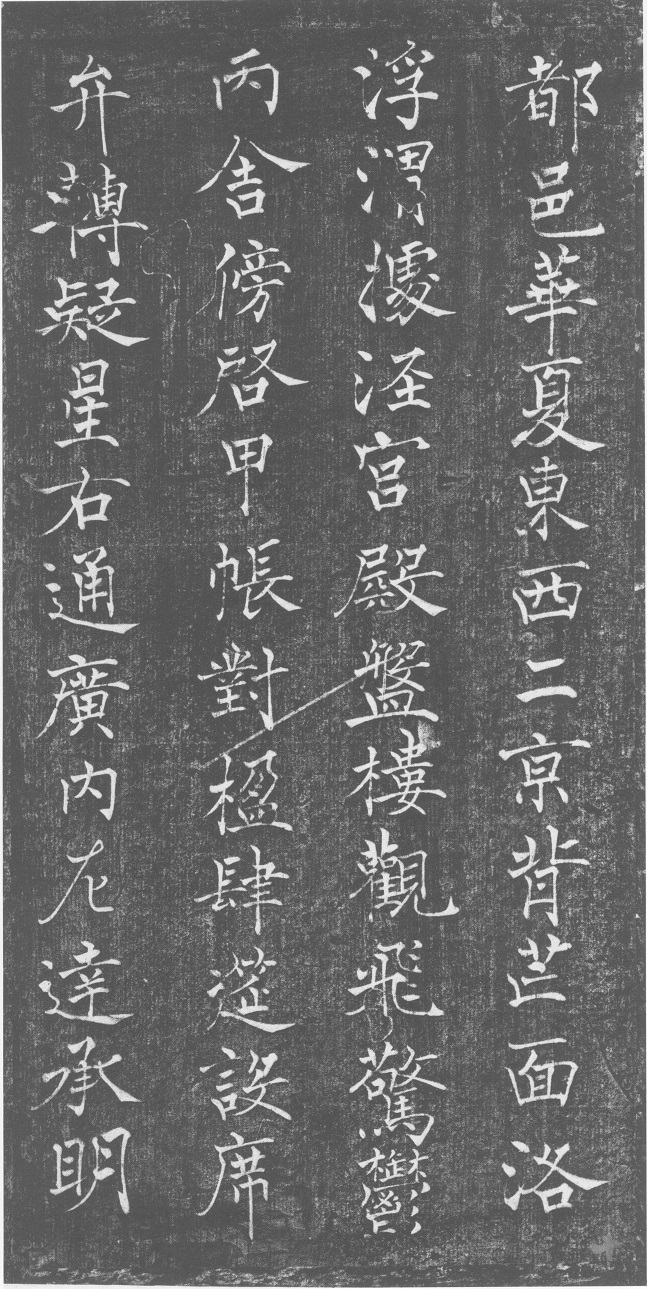 都邑華夏東西二京背芒面洛
浮渭據涇宮殿盤樓觀飛驚鬱
丙舍傍啓甲帳對楹肆筵設席
弁轉疑星右通廣内左達承明